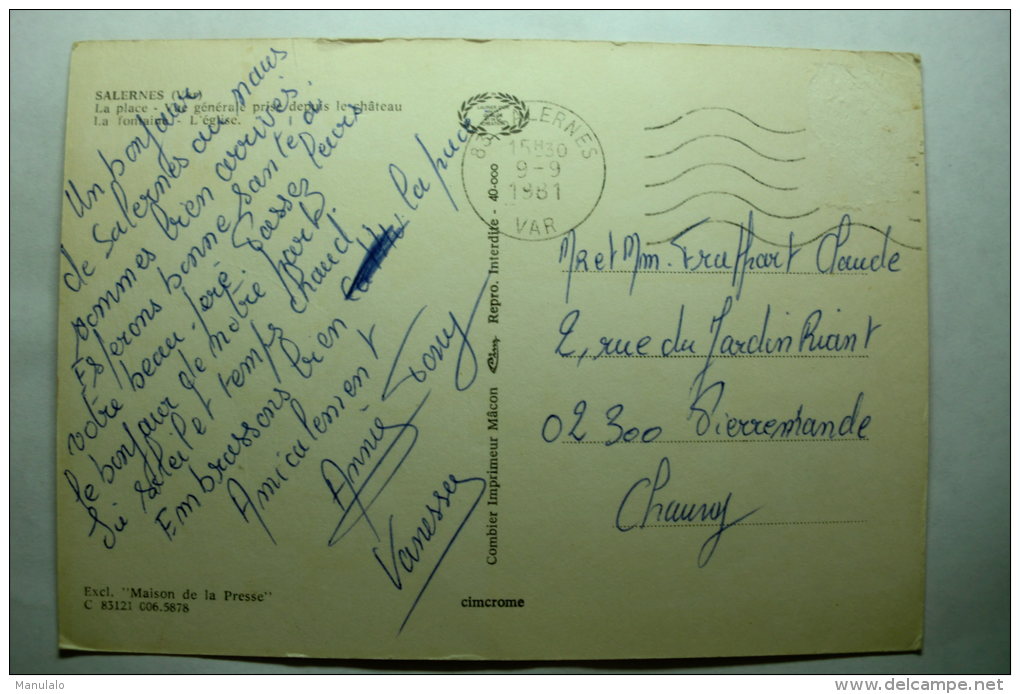 SALERNES (Var)
La place - Vue générale prise depuis le château
La fontaine - L'église.
Un bonjour
de Salernes ou nous
sommes bien arrivés.
Espérons bonne santé a
votre beau-père. Passez leurs
le bonjour de notre part.
Ici soleil et temps chaud.
Embrassons bien la puce
Amicalement
Annie Tony
Vanessa
83 SALERNES
15H30
9-9
1981
VAR
Mr et Mm. Fraffart Claude
2, rue du Jardin Riant
02300 Pierremande
Chauny
Combier Imprimeur Mâcon Cim Repro. Interdite - 40-000
Excl. "Maison de la Presse"
C 83121 006.5878
cimcrome
Manulalo
www.delcampe.net